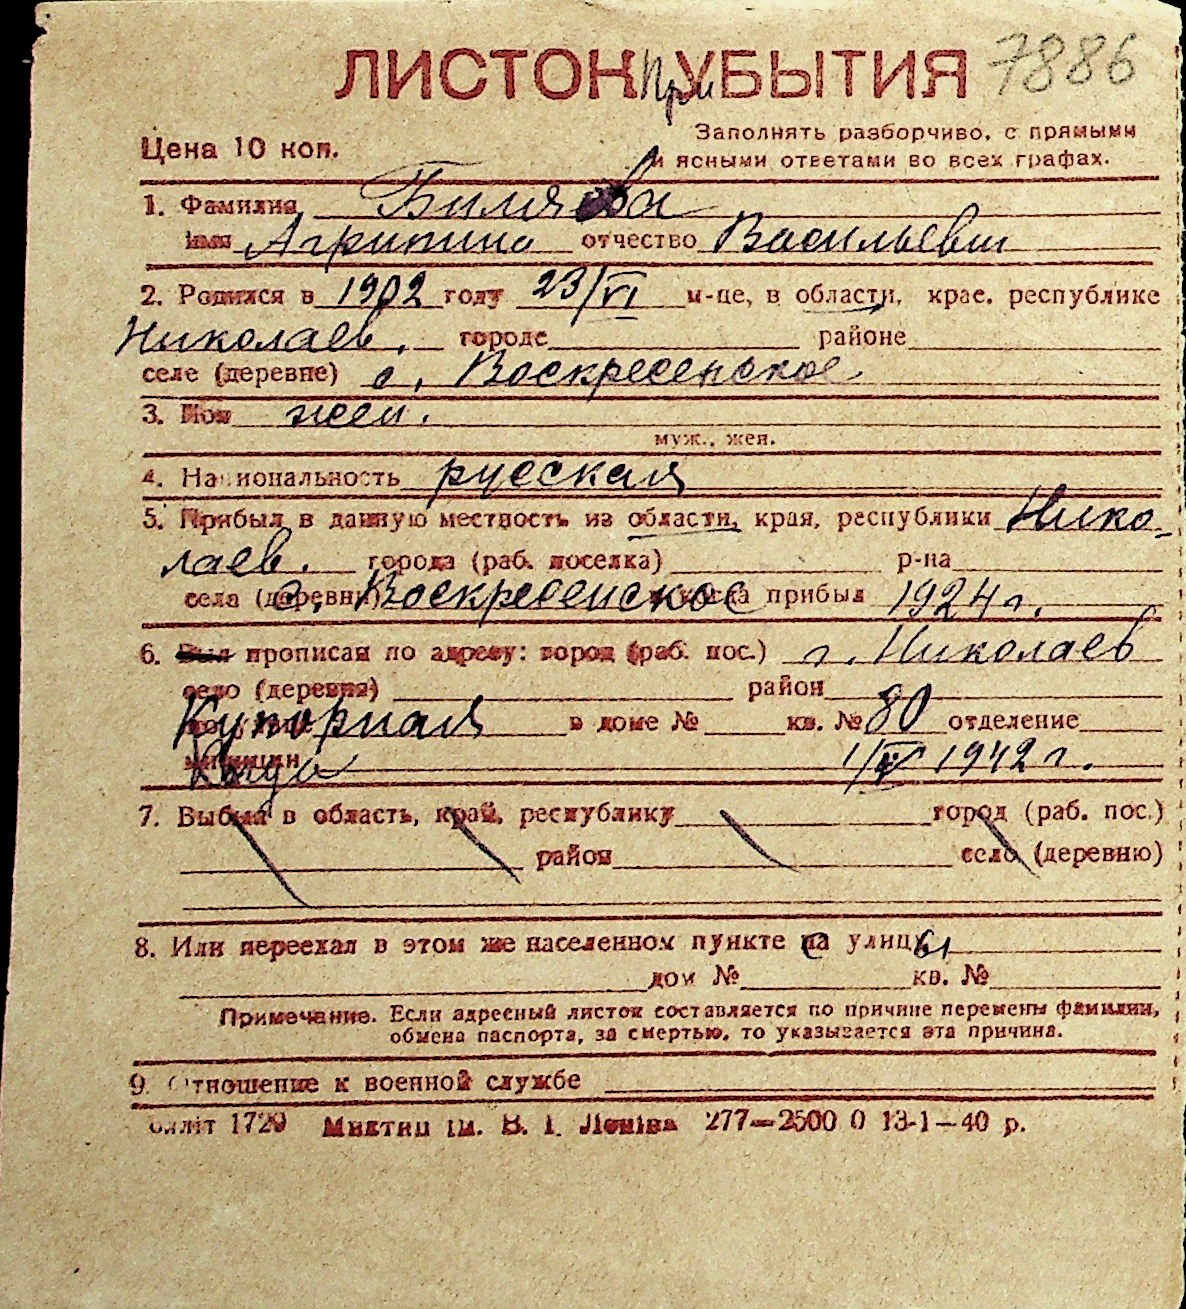 ЛИСТОК При УБЫТИЯ 7886
Цена 10 коп.
Заполнять разборчиво, с прямыми
и ясными ответами во всех графах.
1. Фамилия Билява
имя Агрипина отчество Васильевн
2. Родился в 1902 году 23/VI м-це, в области, крае, республике
Николаев. городе районе
селе (деревне) с. Воскресенское
3. Пол жен.
муж., жен.
4. Национальность русская
5. Прибыл в данную местность из области, края, республики Нико-
лаев. города (раб. поселка) р-на
села (деревни) с. Воскресенское прибыл 1924 г.
6. Был прописан по адресу: город (раб. пос.) г. Николаев
село (деревня) район
Купорная в доме № кв. № 80 отделение
милиции Когда 1942 г.
7. Выбыл в область, край, республику город (раб. пос.)
район село (деревню)
8. Или переехал в этом же населенном пункте с улицы
дом № кв. №
Примечание. Если адресный листок составляется по причине перемены фамилии,
обмена паспорта, за смертью, то указывается эта причина.
9. Отношение к военной службе
1729 ім. В. І. Леніна 277—2500 0 13-1—40 р.